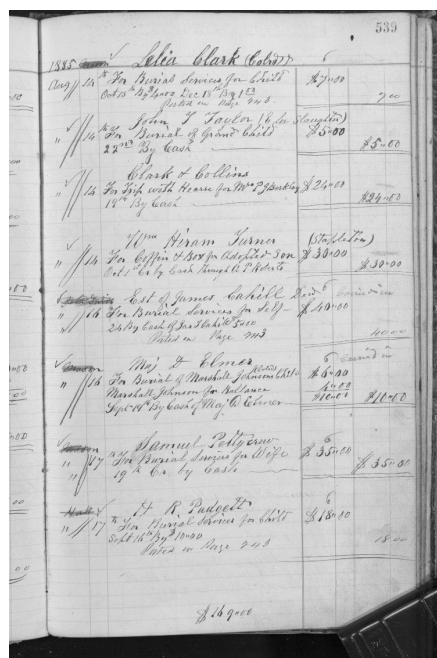 539
1885 Lelia Clark (Cold)
Aug 14 For Burial Services for Child $7.00
Oct 15th By $4.00 Dec 18th By 1.00
Posted on Page 243 7 00
John T Taylor
14 For Burial of Grand Child $5.00
22nd By Cash $5.00
Clark & Collins
14 For Trip with Hearse for Mrs P J Berkley $24.00
18th By Cash $24.00
Wm Hiram Turner (Stapleton)
14 For Coffin & Box for Adopted Son $30.00
Oct 1st Cr by Cash through $30.00
Est of James Cahill Decd
16 For Burial Services for Self $40.00
24 By Cash of Jas Cahill
Posted on Page 243 40 00
Maj D Elmer
16 For Burial of Marshall Johnsons Child $6.00
Marshall Johnson for Ballance 4.00
Sept 19th By Cash of Maj D Elmer $10.00 $10.00
Samuel Pettigrew
17 For Burial Services for Wife $35.00
19th Cr. by Cash $35.00
H R Padgett
17th For Burial Services for Child $18.00
Sept 16th By $10.00
Posted on Page 243 18 00
$169.00